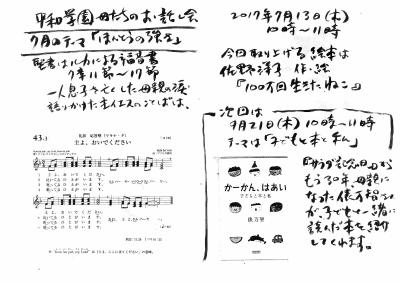 甲和学園母たちのお話し会
7月のテーマ「ほんとうの強さ」
聖書はルカによる福音書
7章11節〜17節
一人息子を亡くした母親の涙
語りかけた主イエスのことばは、
43.
主よ、おいでください
2017年7月13日(木)
10時〜11時
今回取り上げる絵本は
佐野洋子 作・絵
『100万回生きたねこ』
次回は
9月21日(木) 10時〜11時
テーマは「子どもと本と私」
かーかん、はあい
子どもと本と私
俵万智
『サラダ記念日』から
もう30年、母親に
なった俵万智さん
が、子どもと一緒に
読んだ本を紹介
してくれます。